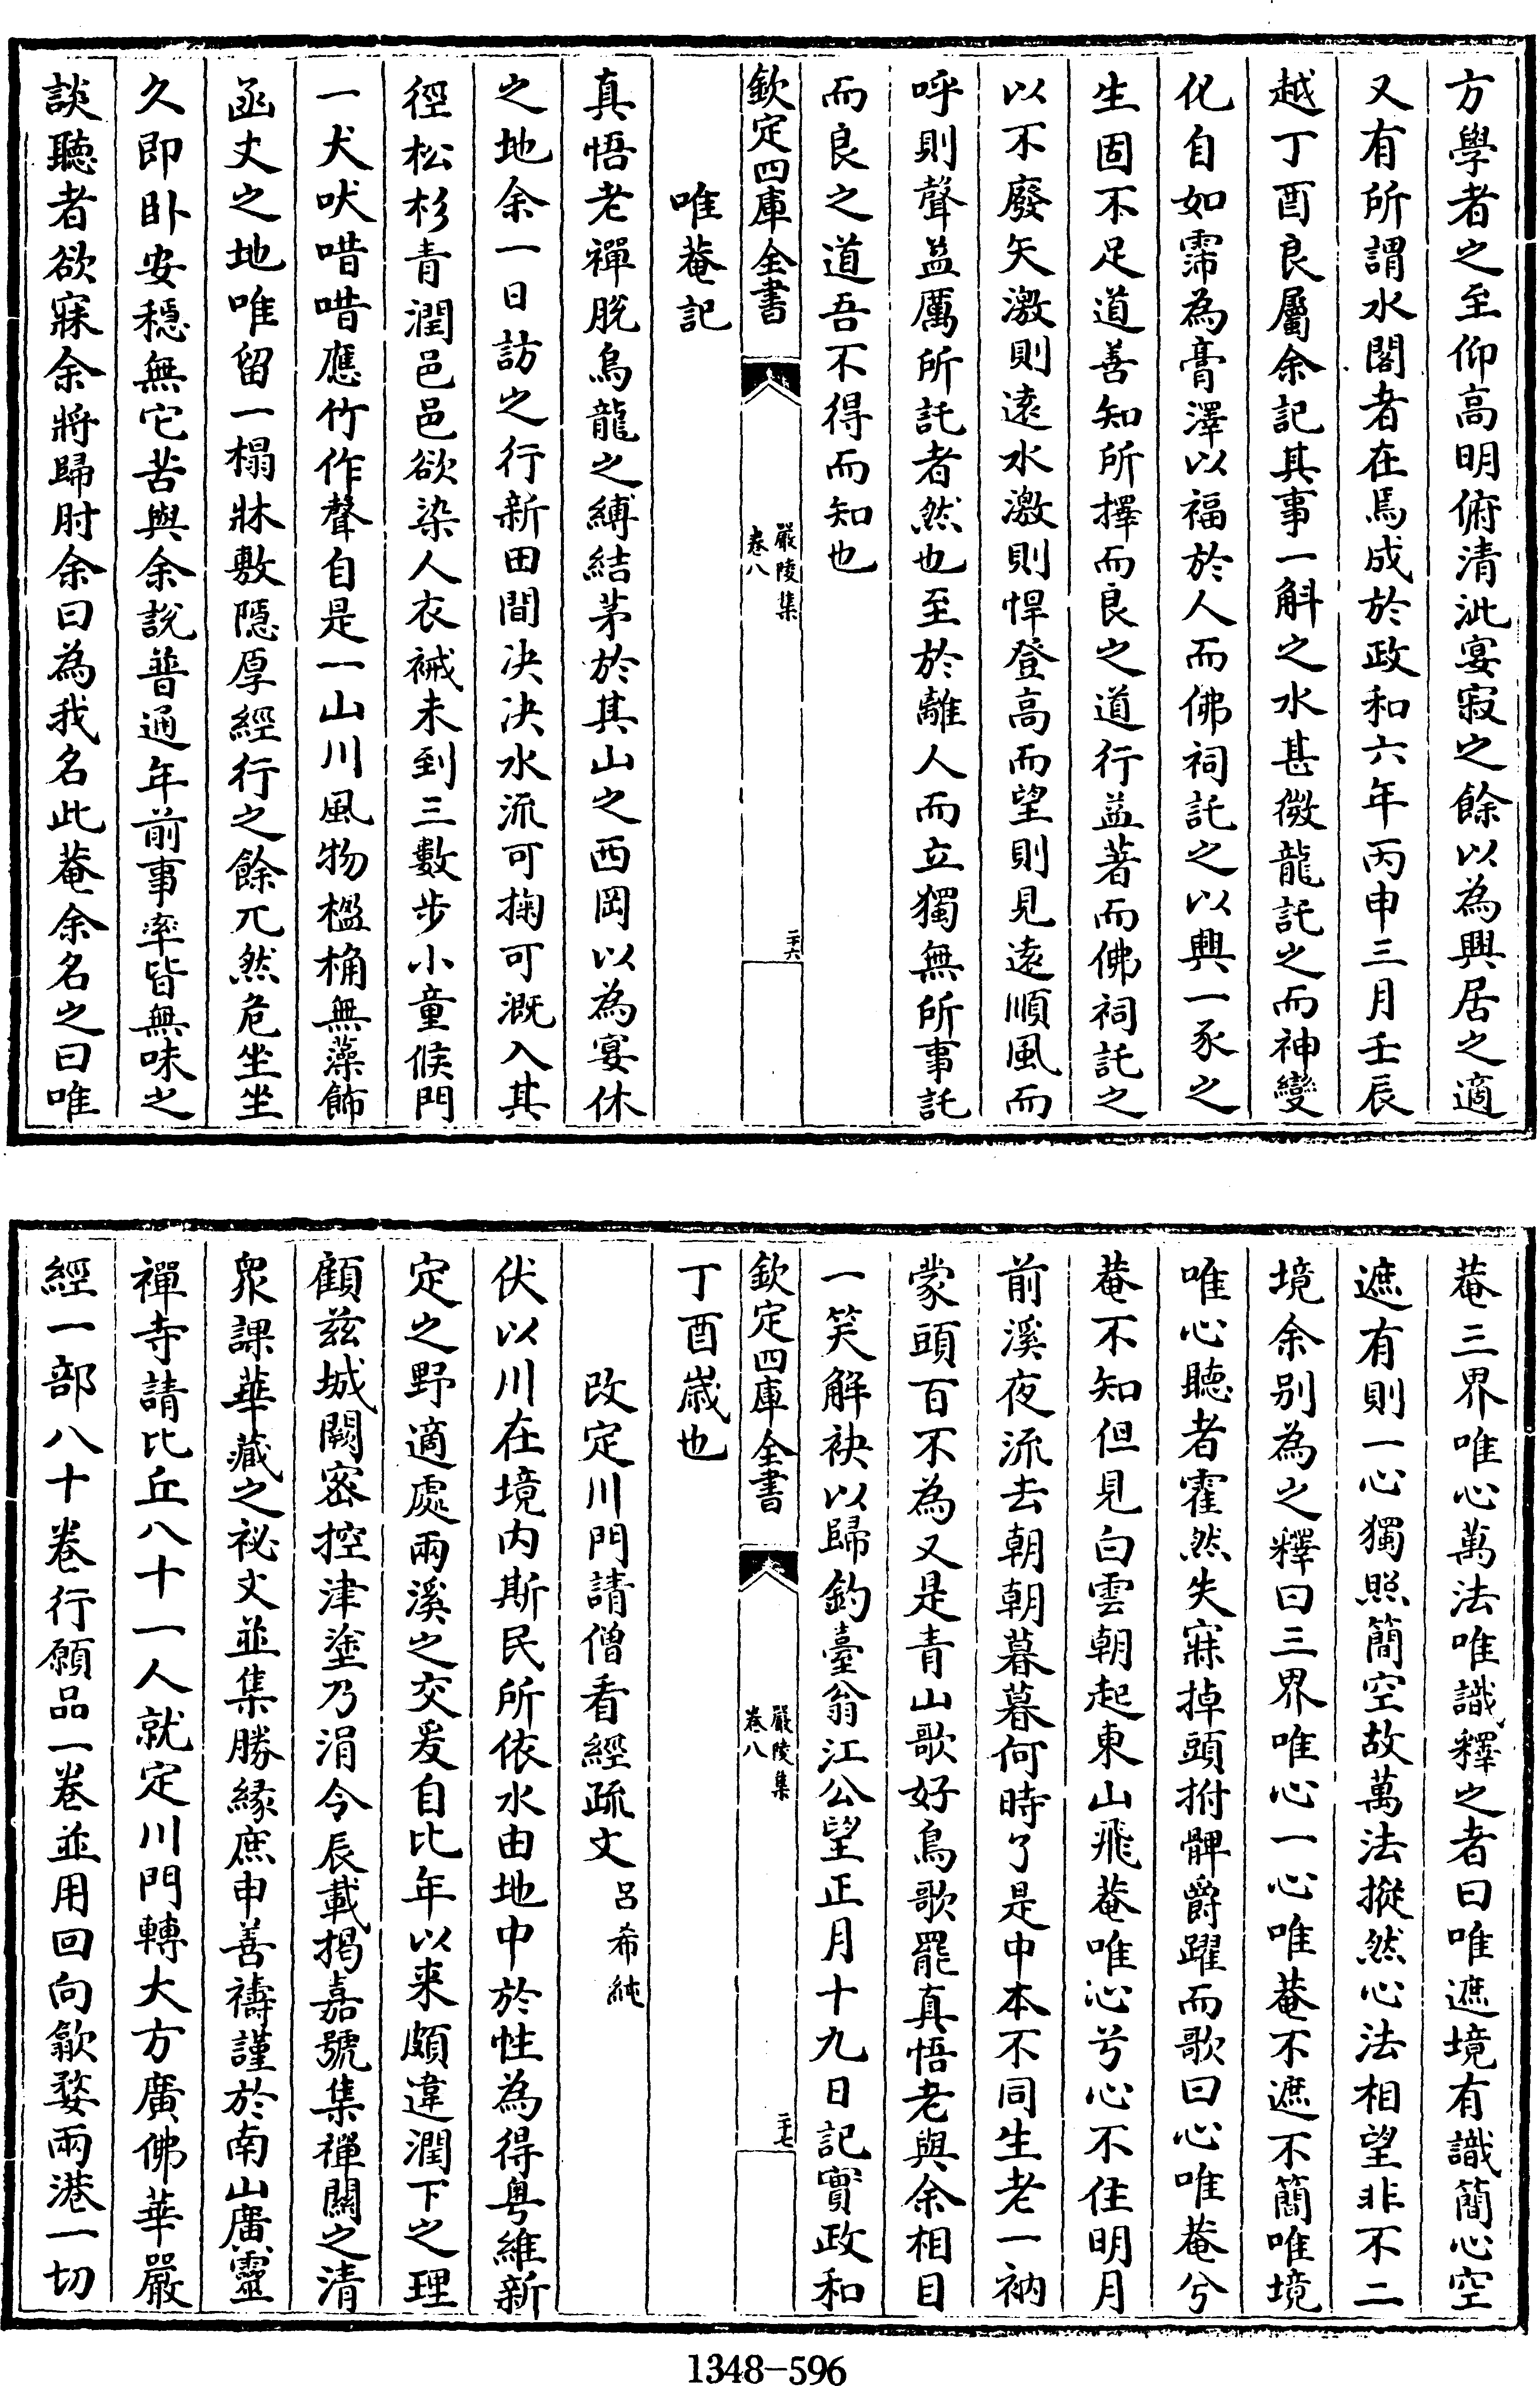 方學者之至仰高明俯清泚宴寂之餘以為興居之適
又有所謂水閣者在馬成於政和六年丙申三月壬辰
越丁酉良屬余記其事一斛之水甚微龍託之而神變
化自如霈為膏澤以福於人而佛祠託之以興一豕之
生固不足道善知所擇而良之道行益著而佛祠託之
以不廢矢激則遠水激則悍登高而望則見遠順風而
呼則聲益厲所託者然也至於離人而立獨無所事託
而良之道吾不得而知也
欽定四庫全書
嚴陵集
卷八
二十六
唯菴記
真悟老禪脫烏龍之縛結茅於其山之西岡以為宴休
之地余一日訪之行新田間決決水流可掬可溉入其
徑松杉青潤邑邑欲染人衣裓未到三數步小童候門
一犬吠唶唶應竹作聲自是一山川風物楹桷無藻飾
函丈之地唯留一榻牀敷隱厚經行之餘兀然危坐坐
久即卧安穩無它苦與余說普通年前事率皆無味之
談聽者欲寐余將歸肘余曰為我名此菴余名之曰唯
菴三界唯心萬法唯識釋之者曰唯遮境有識簡心空
遮有則一心獨照簡空故萬法摐然心法相望非不二
境余别為之釋曰三界唯心一心唯菴不遮不簡唯境
唯心聽者霍然失寐掉頭拊髀爵躍而歌曰心唯菴兮
菴不知但見白雲朝起東山飛菴唯心兮心不住明月
前溪夜流去朝朝暮暮何時了是中本不同生老一衲
蒙頭百不為又是青山歌好鳥歌罷真悟老與余相目
一笑解袂以歸釣臺翁江公望正月十九日記實政和
欽定四庫全書
嚴陵集
卷八
二十七
丁酉歳也
改定川門請僧看經疏文 呂希純
伏以川在境内斯民所依水由地中於性為得粤維新
定之野適處兩溪之交爰自比年以来頗違潤下之理
顧兹城闕密控津塗乃涓令辰載揭嘉號集禪關之清
衆課華藏之祕文並集勝緣庶申善禱謹於南山廣靈
禪寺請比丘八十一人就定川門轉大方廣佛華嚴
經一部八十卷行願品一卷並用回向歙婺兩港一切
1348-596